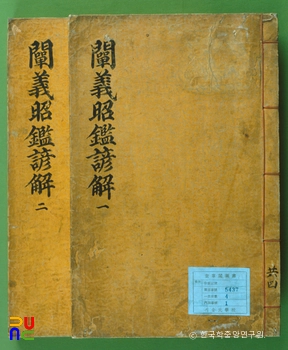 闡義昭鑑諺解 一
闡義昭鑑諺解 二
共四
6437
4
1
© 한국학중앙연구원